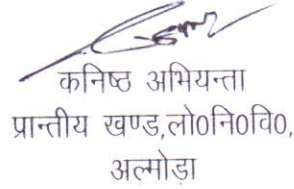 कनिष्ठ अभियन्ता
प्रान्तीय खण्ड,लो०नि०वि०,
अल्मोड़ा